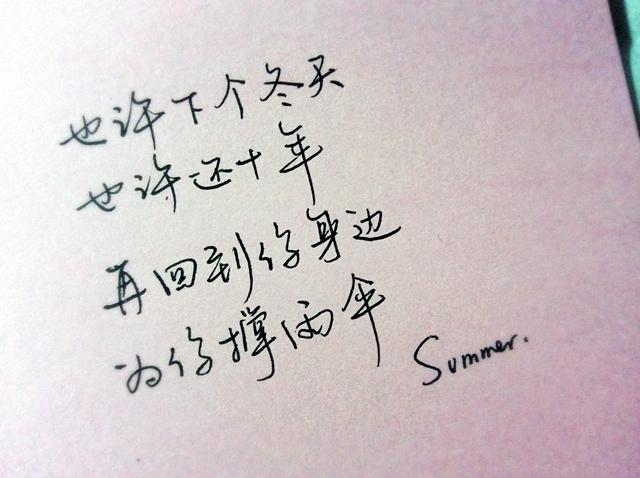 也许下个冬天
也许还十年
再回到你身边
为你撑雨伞
Summer.